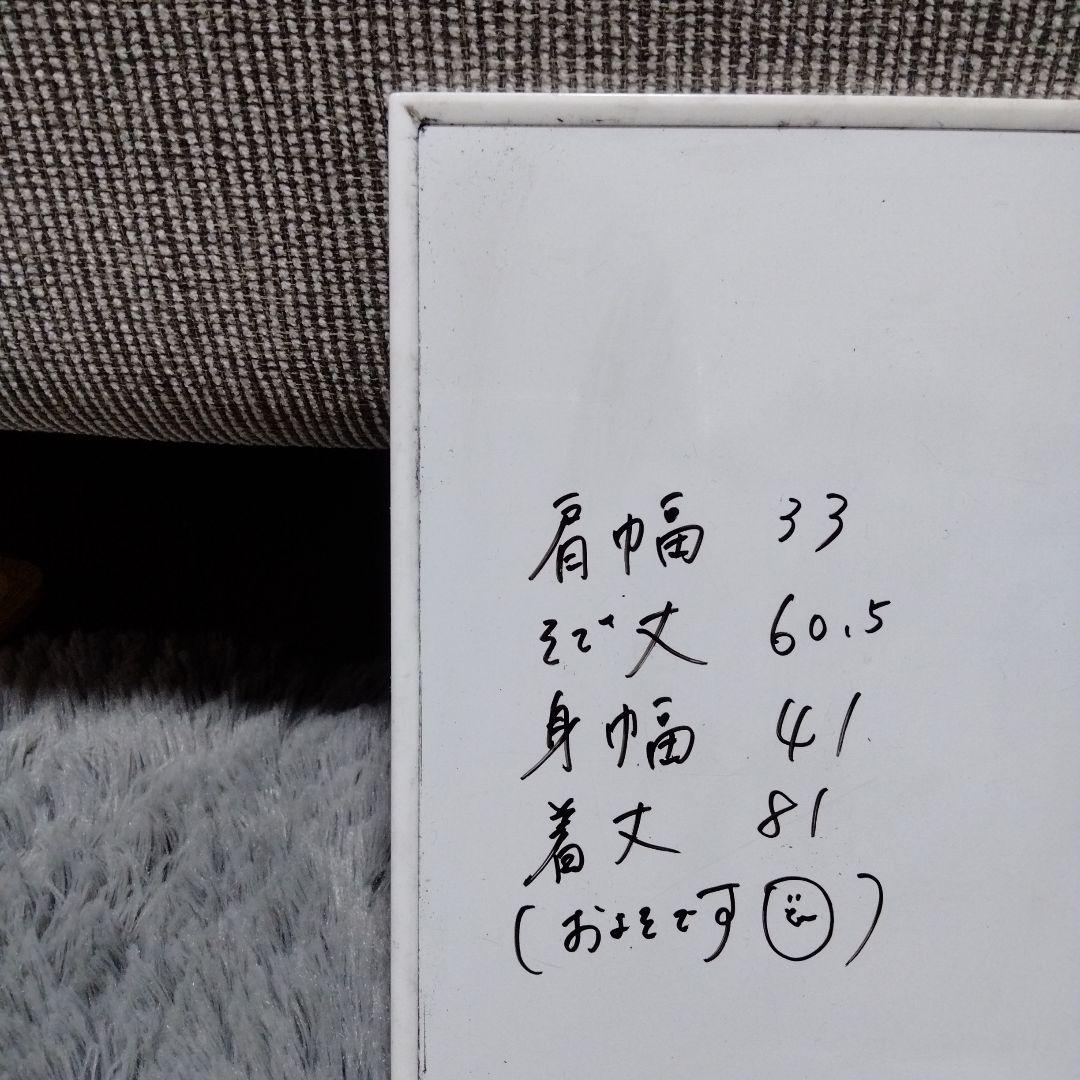 肩幅 33
そで丈 60.5
身幅 41
着丈 81
(およそです)